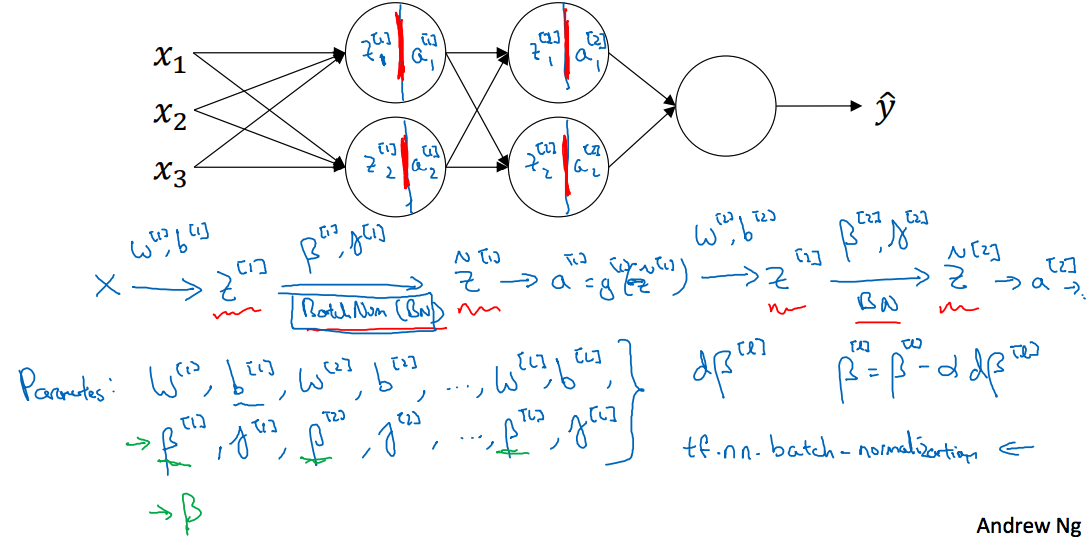 x₁
x₂
x₃
z₁^[1] a₁^[1]
z₂^[1] a₂^[1]
z₁^[2] a₁^[2]
z₂^[2] a₂^[2]
ŷ
X →(w^[1], b^[1]) z^[1] →(β^[1], γ^[1]) Batch Norm (BN) z̃^[1] → a^[1] = g^[1](z̃^[1]) →(w^[2], b^[2]) z^[2] →(β^[2], γ^[2]) BN z̃^[2] → a^[2] →
Parameters: w^[1], b^[1], w^[2], b^[2], ..., w^[L], b^[L], } dβ^[l] β^[l] = β^[l] - α dβ^[l]
→ β^[1], γ^[1], β^[2], γ^[2], ..., β^[L], γ^[L] tf.nn.batch-normalization ←
→ β
Andrew Ng